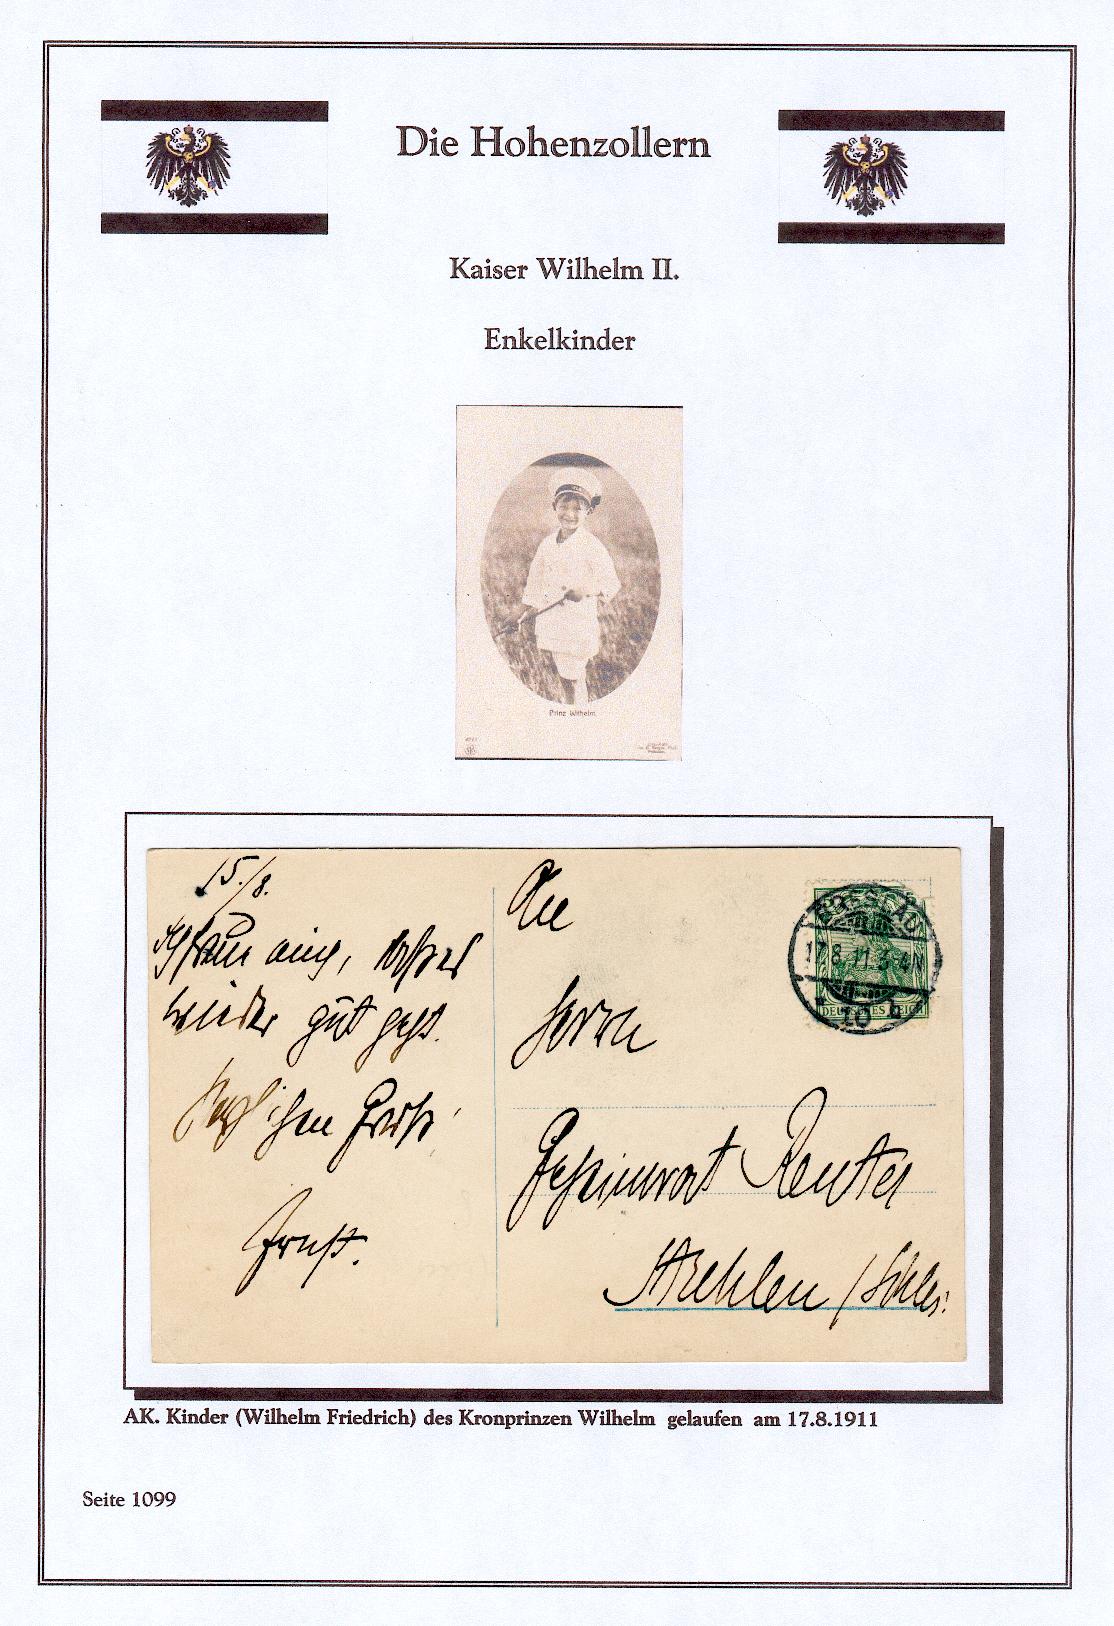 Die Hohenzollern
Kaiser Wilhelm II.
Enkelkinder
Prinz Wilhelm.
15./8.
wieder gut geht.
Gruß
Ernst.
An
Herrn
Geheimrat Reuter
Strehlen / Schles.
BRESLAU
17.8.11.3-4N
10
DEUTSCHES REICH
AK. Kinder (Wilhelm Friedrich) des Kronprinzen Wilhelm gelaufen am 17.8.1911
Seite 1099